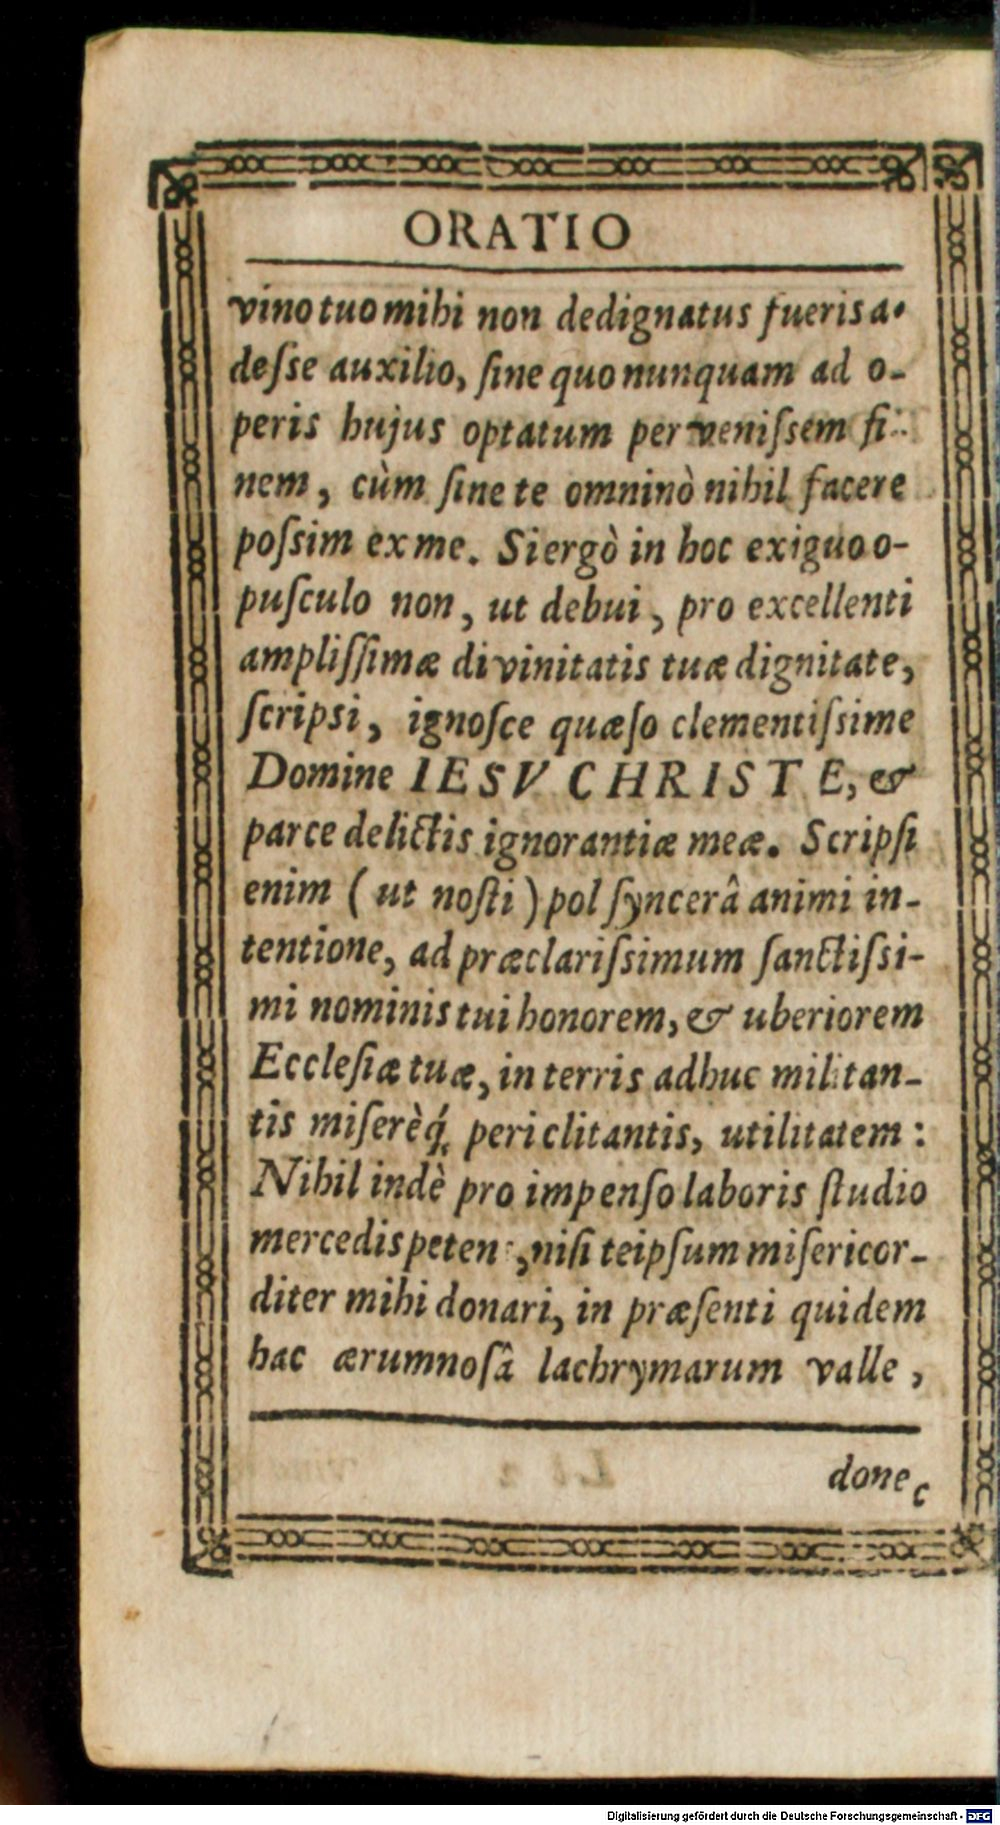 ORATIO
vino tuo mihi non dedignatus fueris a-
deſse auxilio, ſine quo nunquam ad o-
peris hujus optatum perveniſsem fi-
nem, cùm ſine te omninò nihil facere
poſsim ex me. Si ergò in hoc exiguo o-
puſculo non, ut debui, pro excellenti
ampliſſimæ divinitatis tuæ dignitate,
ſcripſi, ignoſce quæſo clementiſsime
Domine IESV CHRISTE, &
parce delictis ignorantiæ meæ. Scripſi
enim (ut noſti) pol ſyncerâ animi in-
tentione, ad præclariſsimum ſanctiſsi-
mi nominis tui honorem, & uberiorem
Eccleſiæ tuæ, in terris adhuc militan-
tis miſerèq́; periclitantis, utilitatem:
Nihil indè pro impenſo laboris ſtudio
mercedis peten , niſi teipſum miſericor-
diter mihi donari, in præſenti quidem
hac ærumnoſâ lachrymarum valle,
donec
Digitalisierung gefördert durch die Deutsche Forschungsgemeinschaft - DFG